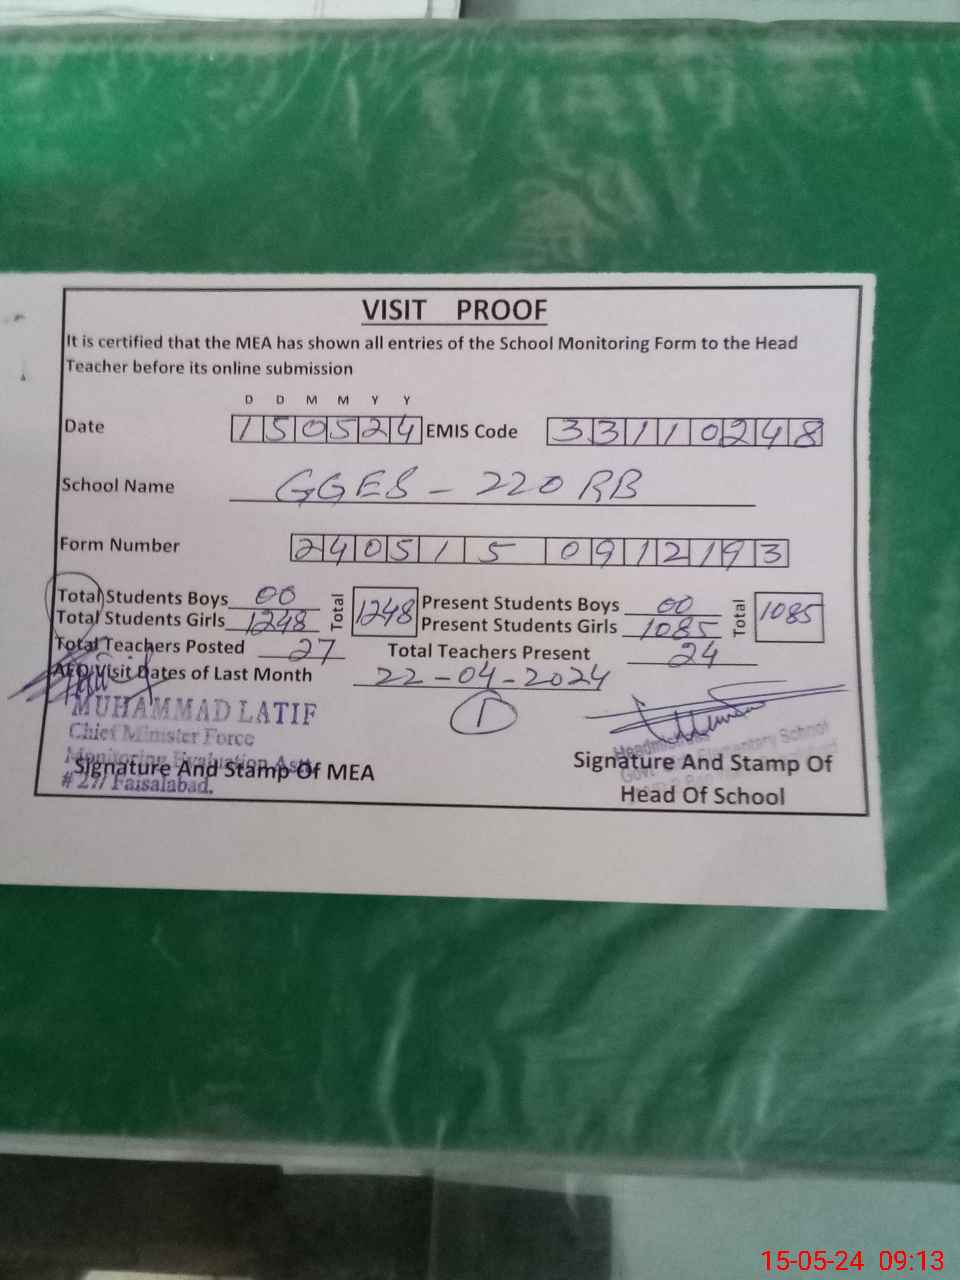 VISIT PROOF
It is certified that the MEA has shown all entries of the School Monitoring Form to the Head
Teacher before its online submission
D D M M Y Y
Date 150524 EMIS Code 33110248
School Name GGES - 220 RB
Form Number 240515 0912193
Total Students Boys 00 Total 1248 Present Students Boys 00 Total 1085
Total Students Girls 1248 Present Students Girls 1085
Total Teachers Posted 27 Total Teachers Present 24
AEO Visit Dates of Last Month 22-04-2024
1
MUHAMMAD LATIF
Chief Minister Force
Monitoring Evaluation Astt
# 277 Faisalabad.
Signature And Stamp Of MEA
Elementary School
Signature And Stamp Of
Head Of School
15-05-24 09:13